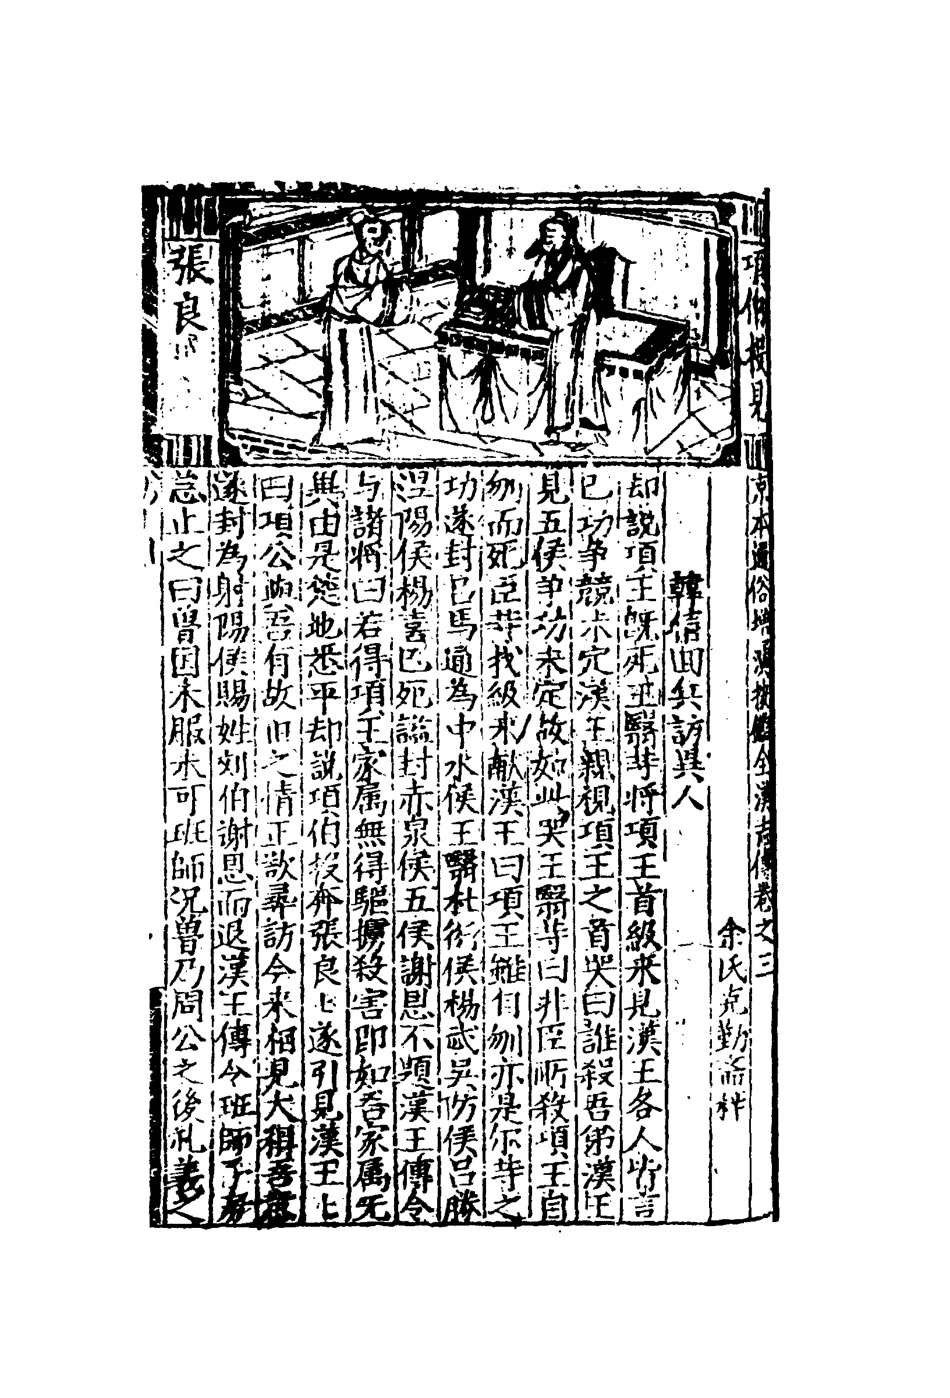 項伯投見
張良
京本通俗增演按鑑全漢志傳卷之三
余氏克勤齋梓
韓信回兵訪異人
却說項王旣死王翳等將項王首級來見漢王各人皆言
已功爭競未定漢王親視項王之首哭曰誰殺吾弟漢王
見五侯爭功未定故如此哭王翳等曰非臣所殺項王自
刎而死臣等找級來献漢王曰項王雖自刎亦是尔等之
功遂封吕馬通為中水侯王翳杜衍侯楊武吳防侯吕勝
涅陽侯楊喜已死謚封赤泉侯五侯謝恩不題漢王傳令
与諸將曰若得項王家属無得驅擄殺害即如吾家属无
異由是楚地悉平却說項伯投奔張良〻遂引見漢王〻
曰項公與吾有故旧之情正欲尋訪今来相見大稱吾意
遂封為射陽侯賜姓刘伯謝恩而退漢王傳令班師子房
急止之曰魯国未服未可班師况魯乃周公之後礼義之